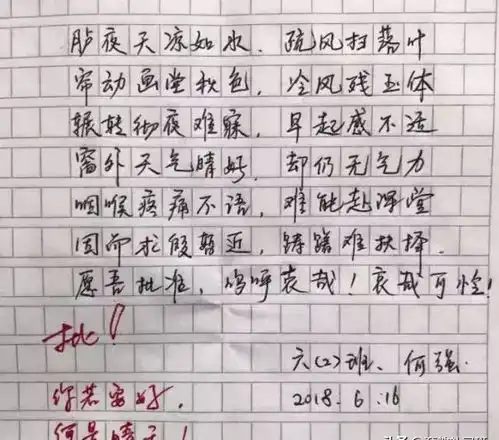 昨夜天凉如水、疏风扫落叶
帘动画堂秋色，冷风残玉体
辗转彻夜难寐，早起感不适
窗外天气晴好，却仍无气力
咽喉疼痛不语，难能赴课堂
因而求假暂近，踌躇难抉择.
愿吾批准，呜呼哀哉！哀哉可怜！
批！
六(2)班、何强.
你若安好，
2018.6.16
何是晴天！